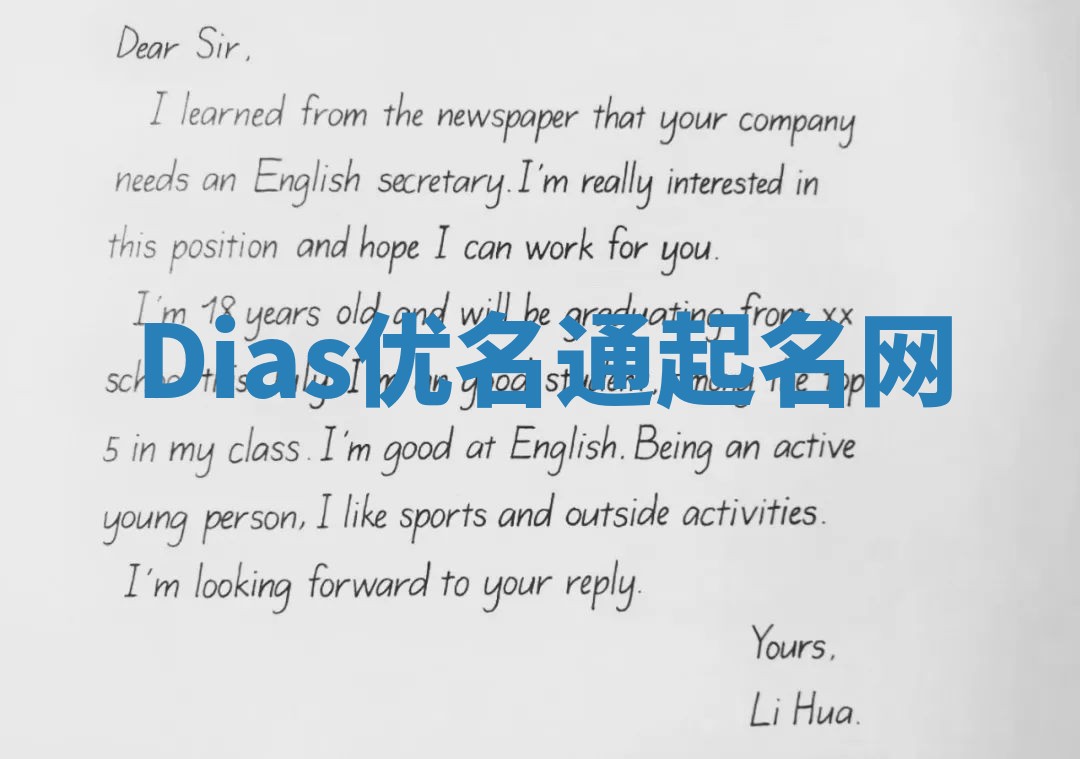 Dear Sir,
I learned from the newspaper that your company
needs an English secretary. I'm really interested in
this position and hope I can work for you.
I'm 18 years old and will be graduating from xx
Dias优名通起名网
school this July. I'm an good student, among the top
5 in my class. I'm good at English. Being an active
young person, I like sports and outside activities.
I'm looking forward to your reply.
Yours,
Li Hua.